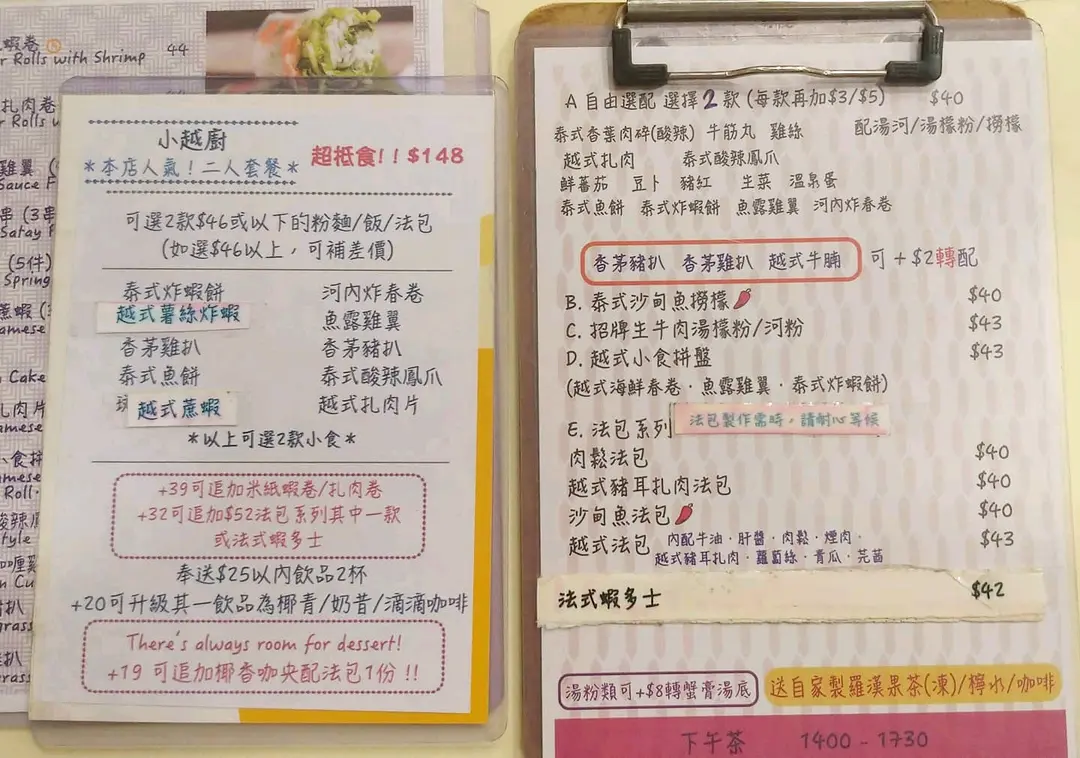 蝦卷
r Rolls with Shrimp 44
扎肉卷
r Rolls w
雞翼
Sauce F
串 (3串
Satay
(5件)
Spring
蔗蝦
amese
Cake
扎肉片
amese
小食拼
amese
Roll
酸辣鳳
tyle
咖喱雞
n Cu
扒
grass
扒
rass
小越廚
*本店人氣!二人套餐*
超抵食!! $148
可選2款$46或以下的粉麵/飯/法包
(如選$46以上，可補差價)
泰式炸蝦餅 河內炸春卷
越式薯絲炸蝦 魚露雞翼
香茅雞扒 香茅豬扒
泰式魚餅 泰式酸辣鳳爪
越式蔗蝦 越式扎肉片
*以上可選2款小食*
+39可追加米紙蝦卷/扎肉卷
+32可追加$52法包系列其中一款
或法式蝦多士
奉送$25以內飲品2杯
+20可升級其一飲品為椰青/奶昔/滴滴咖啡
There's always room for dessert!
+19 可追加椰香咖央配法包1份 !!
A 自由選配 選擇2款 (每款再加$3/$5) $40
泰式香葉肉碎(酸辣) 牛筋丸 雞絲 配湯河/湯檬粉/撈檬
越式扎肉 泰式酸辣鳳爪
鮮蕃茄 豆卜 豬紅 生菜 溫泉蛋
泰式魚餅 泰式炸蝦餅 魚露雞翼 河內炸春卷
香茅豬扒 香茅雞扒 越式牛腩 可+$2轉配
B. 泰式沙甸魚撈檬 $40
C. 招牌生牛肉湯檬粉/河粉 $43
D. 越式小食拼盤 $43
(越式海鮮春卷·魚露雞翼·泰式炸蝦餅)
E. 法包系列 法包製作需時，請耐心等候
肉鬆法包 $40
越式豬耳扎肉法包 $40
沙甸魚法包 $40
越式法包 內配牛油·肝醬·肉鬆·煙肉· $43
越式豬耳扎肉·蘿蔔絲·青瓜·芫茜
法式蝦多士 $42
湯粉類可+$8轉蟹膏湯底 送自家製羅漢果茶(凍)/檸水/咖啡
下午茶 1400 - 1730